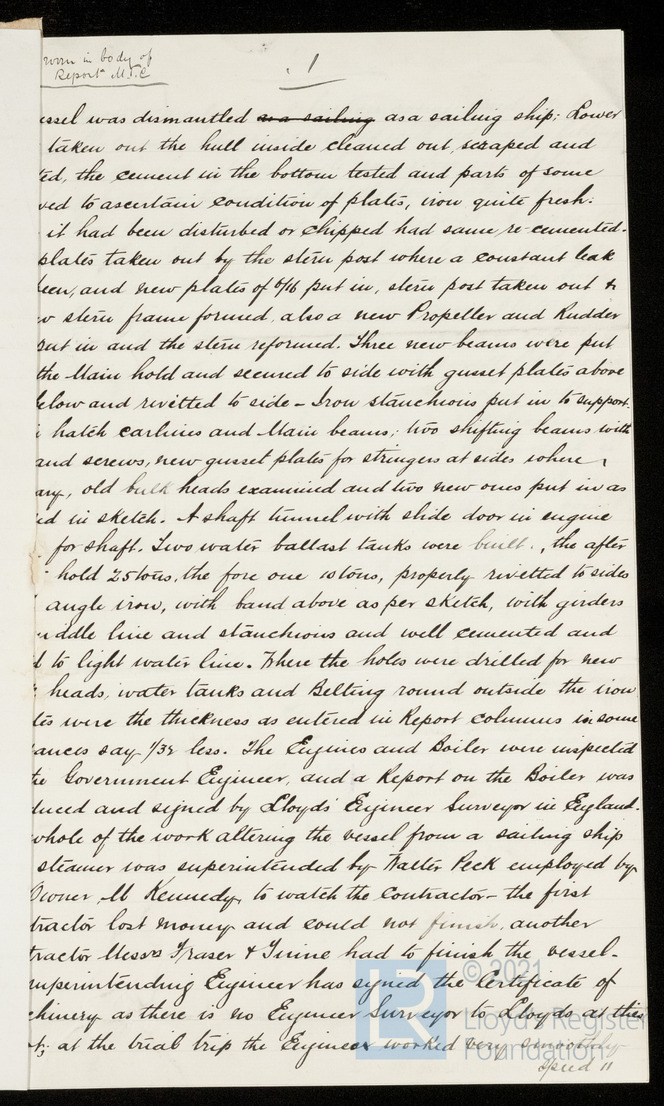 rown in body of
Report M.T.C
1
essel was dismantled as a sailing as a sailing ship; Lower
taken out the hull inside cleaned out, scraped and
ted, the cement in the bottom tested and parts of some
ved to ascertain condition of plates, iron quite fresh.
it had been disturbed or chipped had same re-cemented.
plates taken out by the stern post where a constant leak
been, and new plates of 6/16 put in, stern post taken out &
w stern frame formed, also a new Propeller and Rudder
put in and the stern reformed. Three new beams were put
the Main hold and secured to side with gusset plates above
below and rivitted to side - Iron stanchions put in to support
hatch carlines and Main beams; two shifting beams with
and screws, new gusset plates for stringers at sides where
ary, old bulk heads examined and two new ones put in as
ed in sketch. A shaft tunnel with slide door in engine
for shaft. Two water ballast tanks were built, the after
hold 25 tons, the fore one 10 tons, properly rivetted to sides
angle iron, with band above as per sketch, with girders
iddle line and stanchions and well cemented and
d to light water line. Where the holes were drilled for new
heads, water tanks and Belting round outside the iron
tes were the thickness as entered in Report columns in some
tances say 1/32 less. The Engines and Boiler were inspected
the Government Engineer, and a Report on the Boiler was
duced and signed by Lloyds' Engineer Surveyor in England.
whole of the work altering the vessel from a sailing ship
steamer was superintended by Walter Peck employed by
Owner, M Kennedy, to watch the Contractor - the first
tractor lost money and could not finish, another
tractor Messrs Fraser & Tinne had to finish the vessel.
superintending Engineer has signed the Certificate of
chinery as there is no Engineer Surveyor to Lloyds at this
t; at the trial trip the Engines worked very smoothly
Speed 11
© 2021
Lloyd's Register
Foundation
LR